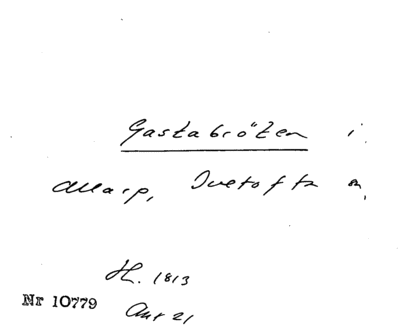 Gastabröten i
Allarp, Tvetofta sn,
H. 1813
Nr 10779
Ant 21